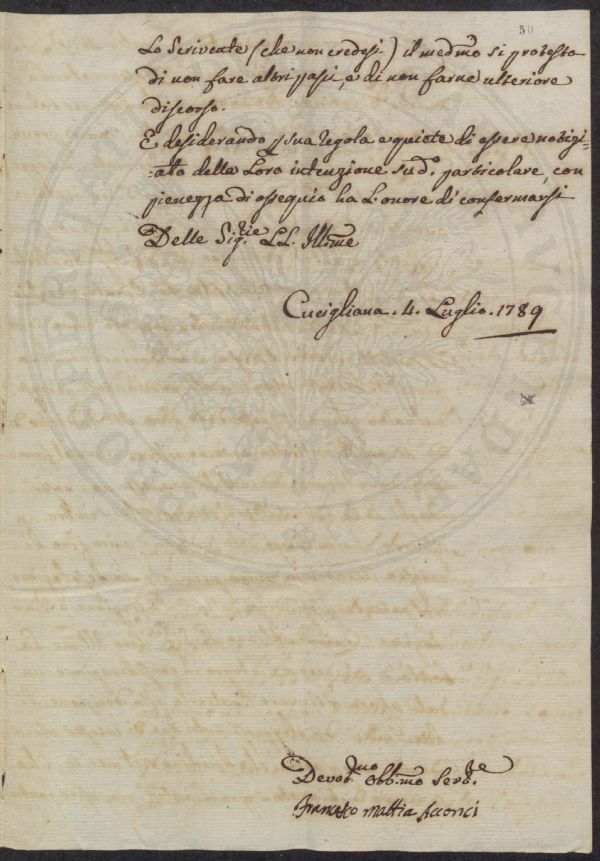 50
Lo Scrivente (che non credesi) il medmo si protesta
di non fare altri passi, e di non farne ulteriore
discorso.
E desiderando p sua regola e quiete di essere notizi=
=ato della Loro intenzione su dº. particolare, con
pienezza di ossequio ha L'onore di confermarsi
Delle Sigrie. LL. Illme
Cucigliana. 4. Luglio. 1789
Devotmo Obbmo Servre.
Francesco Mattia Acconci